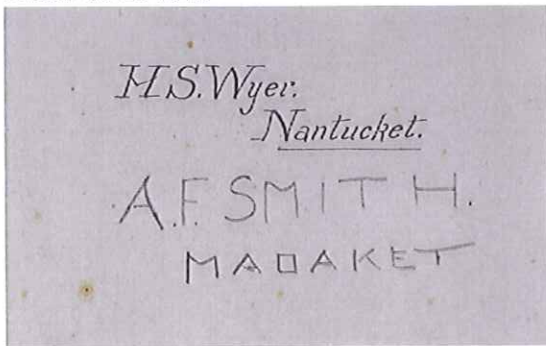 H.S. Wyer.
Nantucket.
A.F. SMITH.
MADAKET